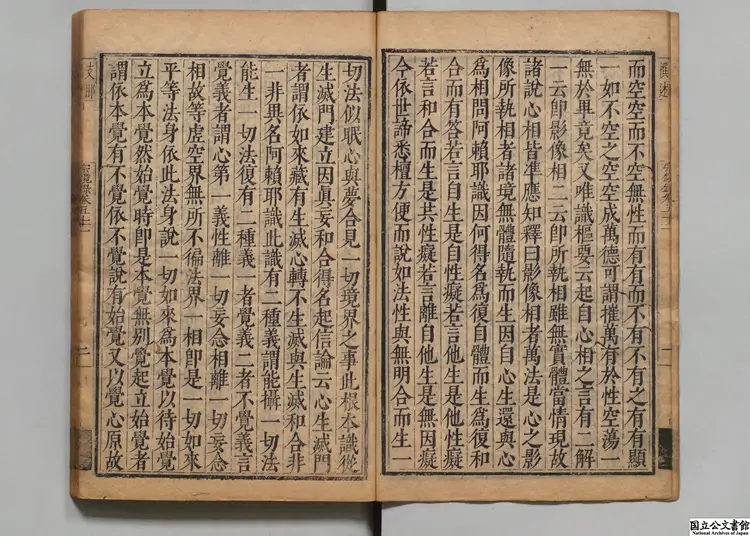 而空空而不空無性而有有而不有不有之有有顯
一如不空之空空成萬德可謂摧萬有於性空蕩一
無於畢竟矣又唯識樞要云起自心相之言有二解
一云卽影像相二云卽所執相雖無實體當情現故
諸說心相皆準應知釋曰影像相者萬法是心之影
像所執相者諸境無體隨執而生因自心生還與心
爲相問阿賴耶識因何得名爲復自體而生爲復和
合而有答若言自生是自性癡若言他生是他性癡
若言和合而生是共性癡若言離自他生是無因癡
今依世諦悉檀方便而說如法性與無明合而生一
切法似眠心與夢合見一切境界之事此根本識從
生滅門建立因眞妄和合得名起信論云心生滅門
者謂依如來藏有生滅心轉不生滅與生滅和合非
一非異名阿賴耶識此識有二種義謂能攝一切法
能生一切法復有二種義一者覺義二者不覺義言
覺義者謂心第一義性離一切妄念相離一切妄念
相故等虛空界無所不徧法界一相卽是一切如來
平等法身依此法身說一切如來爲本覺以待始覺
立爲本覺然始覺時卽是本覺無別覺起立始覺者
謂依本覺有不覺依不覺說有始覺又以覺心原故
国立公文書館
National Archives of Japan